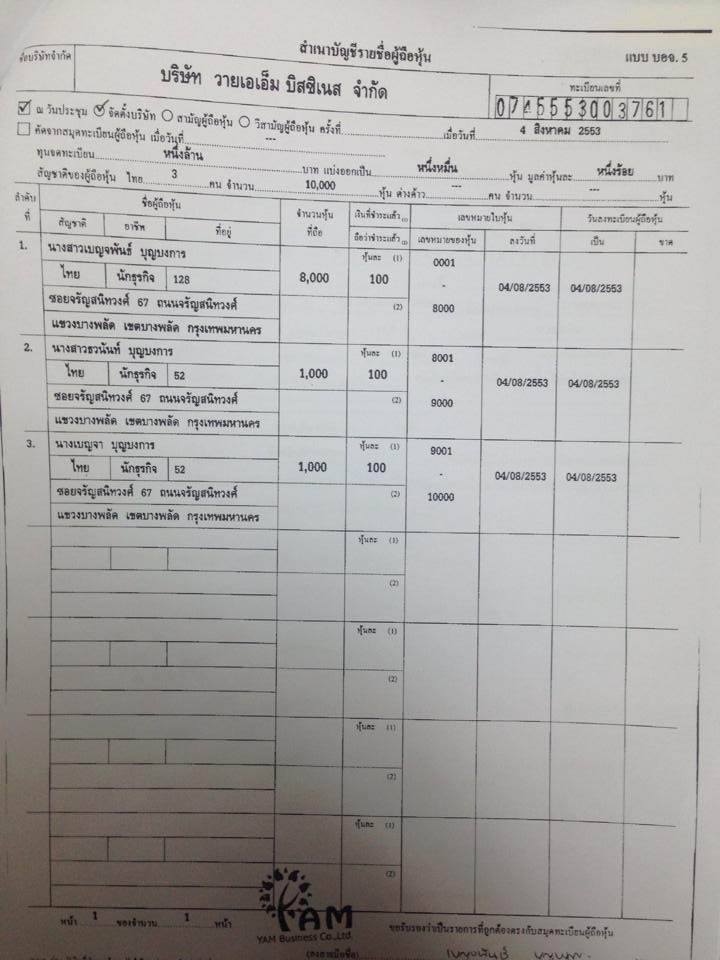 สำเนาบัญชีรายชื่อผู้ถือหุ้น
แบบ บอจ. 5
ชื่อบริษัทจำกัด
บริษัท วายเอเอ็ม บิสซิเนส จำกัด
ทะเบียนเลขที่
0745553003761
ณ วันประชุม จัดตั้งบริษัท สามัญผู้ถือหุ้น วิสามัญผู้ถือหุ้น ครั้งที่ เมื่อวันที่ 4 สิงหาคม 2553
คัดจากสมุดทะเบียนผู้ถือหุ้น เมื่อวันที่ ---
ทุนจดทะเบียน หนึ่งล้าน บาท แบ่งออกเป็น หนึ่งหมื่น หุ้น มูลค่าหุ้นละ หนึ่งร้อย บาท
สัญชาติของผู้ถือหุ้น ไทย 3 คน จำนวน 10,000 หุ้น ต่างด้าว --- คน จำนวน --- หุ้น
ลำดับที่ ชื่อผู้ถือหุ้น จำนวนหุ้นที่ถือ เงินที่ชำระแล้ว(1) เลขหมายใบหุ้น วันลงทะเบียนผู้ถือหุ้น
สัญชาติ อาชีพ ที่อยู่ ถือว่าชำระแล้ว เลขหมายของหุ้น ลงวันที่ เป็น ขาด
1. นางสาวเบญจพันธ์ บุญบงการ หุ้นละ (1) 0001
ไทย นักธุรกิจ 128 8,000 100 - 04/08/2553 04/08/2553
ซอยจรัญสนิทวงศ์ 67 ถนนจรัญสนิทวงศ์ (2) 8000
แขวงบางพลัด เขตบางพลัด กรุงเทพมหานคร
2. นางสาวธวนันท์ บุญบงการ หุ้นละ (1) 8001
ไทย นักธุรกิจ 52 1,000 100 - 04/08/2553 04/08/2553
ซอยจรัญสนิทวงศ์ 67 ถนนจรัญสนิทวงศ์ (2) 9000
แขวงบางพลัด เขตบางพลัด กรุงเทพมหานคร
3. นางเบญจา บุญบงการ หุ้นละ (1) 9001
ไทย นักธุรกิจ 52 1,000 100 - 04/08/2553 04/08/2553
ซอยจรัญสนิทวงศ์ 67 ถนนจรัญสนิทวงศ์ (2) 10000
แขวงบางพลัด เขตบางพลัด กรุงเทพมหานคร
หุ้นละ (1)
(2)
หุ้นละ (1)
(2)
หุ้นละ (1)
(2)
หุ้นละ (1)
(2)
หน้า 1 ของจำนวน 1 หน้า
YAM
YAM Business Co.,Ltd.
ขอรับรองว่าเป็นรายการที่ถูกต้องตรงกับสมุดทะเบียนผู้ถือหุ้น
(ลงลายมือชื่อ)